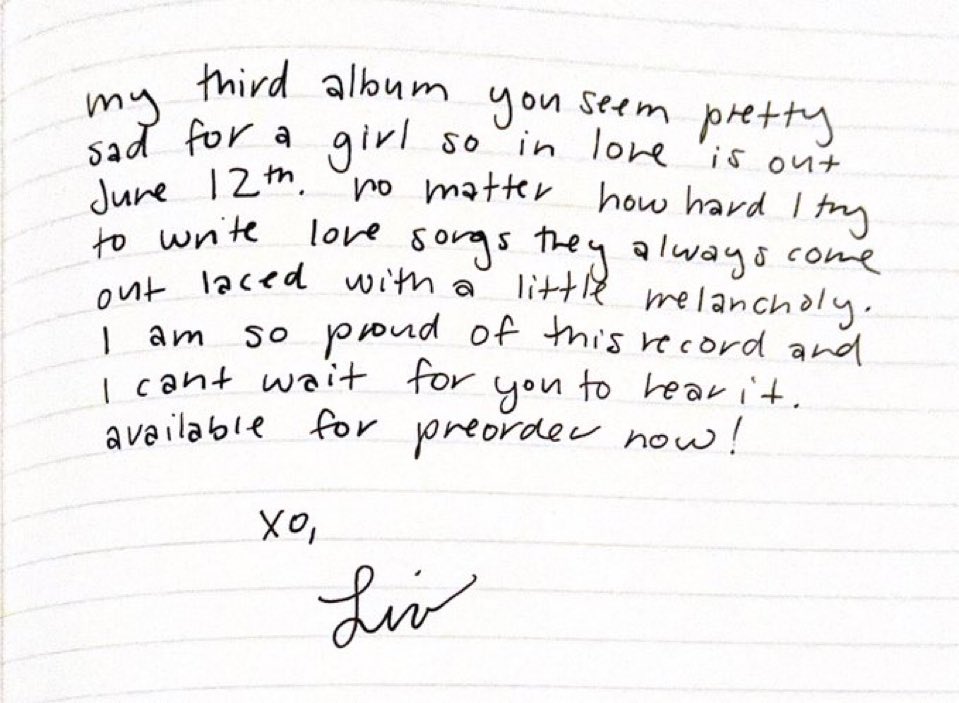 my third album you seem pretty
sad for a girl so in love is out
June 12th. no matter how hard I try
to write love songs they always come
out laced with a little melancholy.
I am so proud of this record and
I cant wait for you to hear it.
available for preorder now!
xo,
Liv